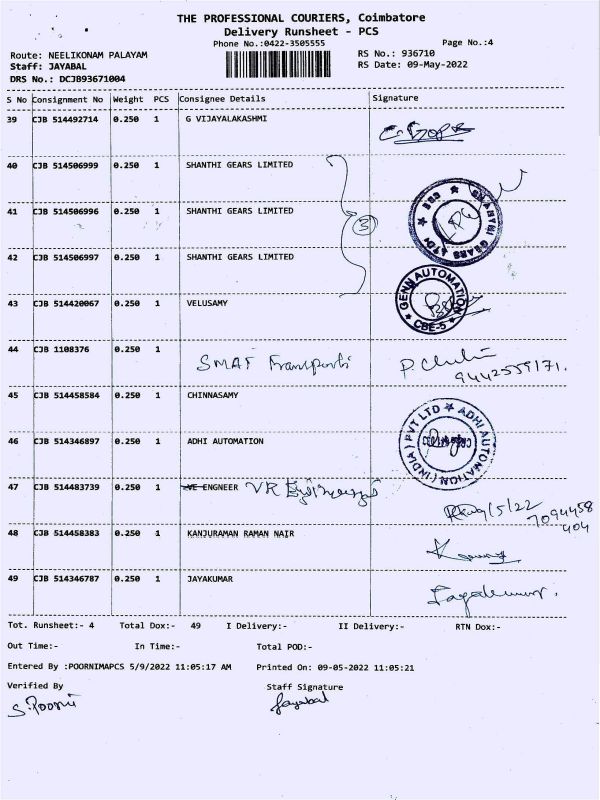 THE PROFESSIONAL COURIERS, Coimbatore
Delivery Runsheet - PCS
Phone No.:0422-3505555 Page No.:4
Route: NEELIKONAM PALAYAM RS No.: 936710
Staff: JAYABAL RS Date: 09-May-2022
DRS No.: DCJB93671004
S No Consignment No Weight PCS Consignee Details Signature
39 CJB 514492714 0.250 1 G VIJAYALAKASHMI
40 CJB 514506999 0.250 1 SHANTHI GEARS LIMITED
41 CJB 514506996 0.250 1 SHANTHI GEARS LIMITED 3
SHANTHI GEARS LTD
42 CJB 514506997 0.250 1 SHANTHI GEARS LIMITED
43 CJB 514420067 0.250 1 VELUSAMY
GENN AUTOMATION
CBE-5
44 CJB 1108376 0.250 1 SMAT Transports
9442559171.
45 CJB 514458584 0.250 1 CHINNASAMY
46 CJB 514346897 0.250 1 ADHI AUTOMATION
ADHI AUTOMATION (INDIA) PVT LTD
47 CJB 514483739 0.250 1 VE ENGNEER VR
9/5/22
7094458
404
48 CJB 514458383 0.250 1 KANJURAMAN RAMAN NAIR
49 CJB 514346787 0.250 1 JAYAKUMAR Jayakumar.
Tot. Runsheet:- 4 Total Dox:- 49 I Delivery:- II Delivery:- RTN Dox:-
Out Time:- In Time:- Total POD:-
Entered By :POORNIMAPCS 5/9/2022 11:05:17 AM Printed On: 09-05-2022 11:05:21
Verified By Staff Signature
S.Poorni Jayabal